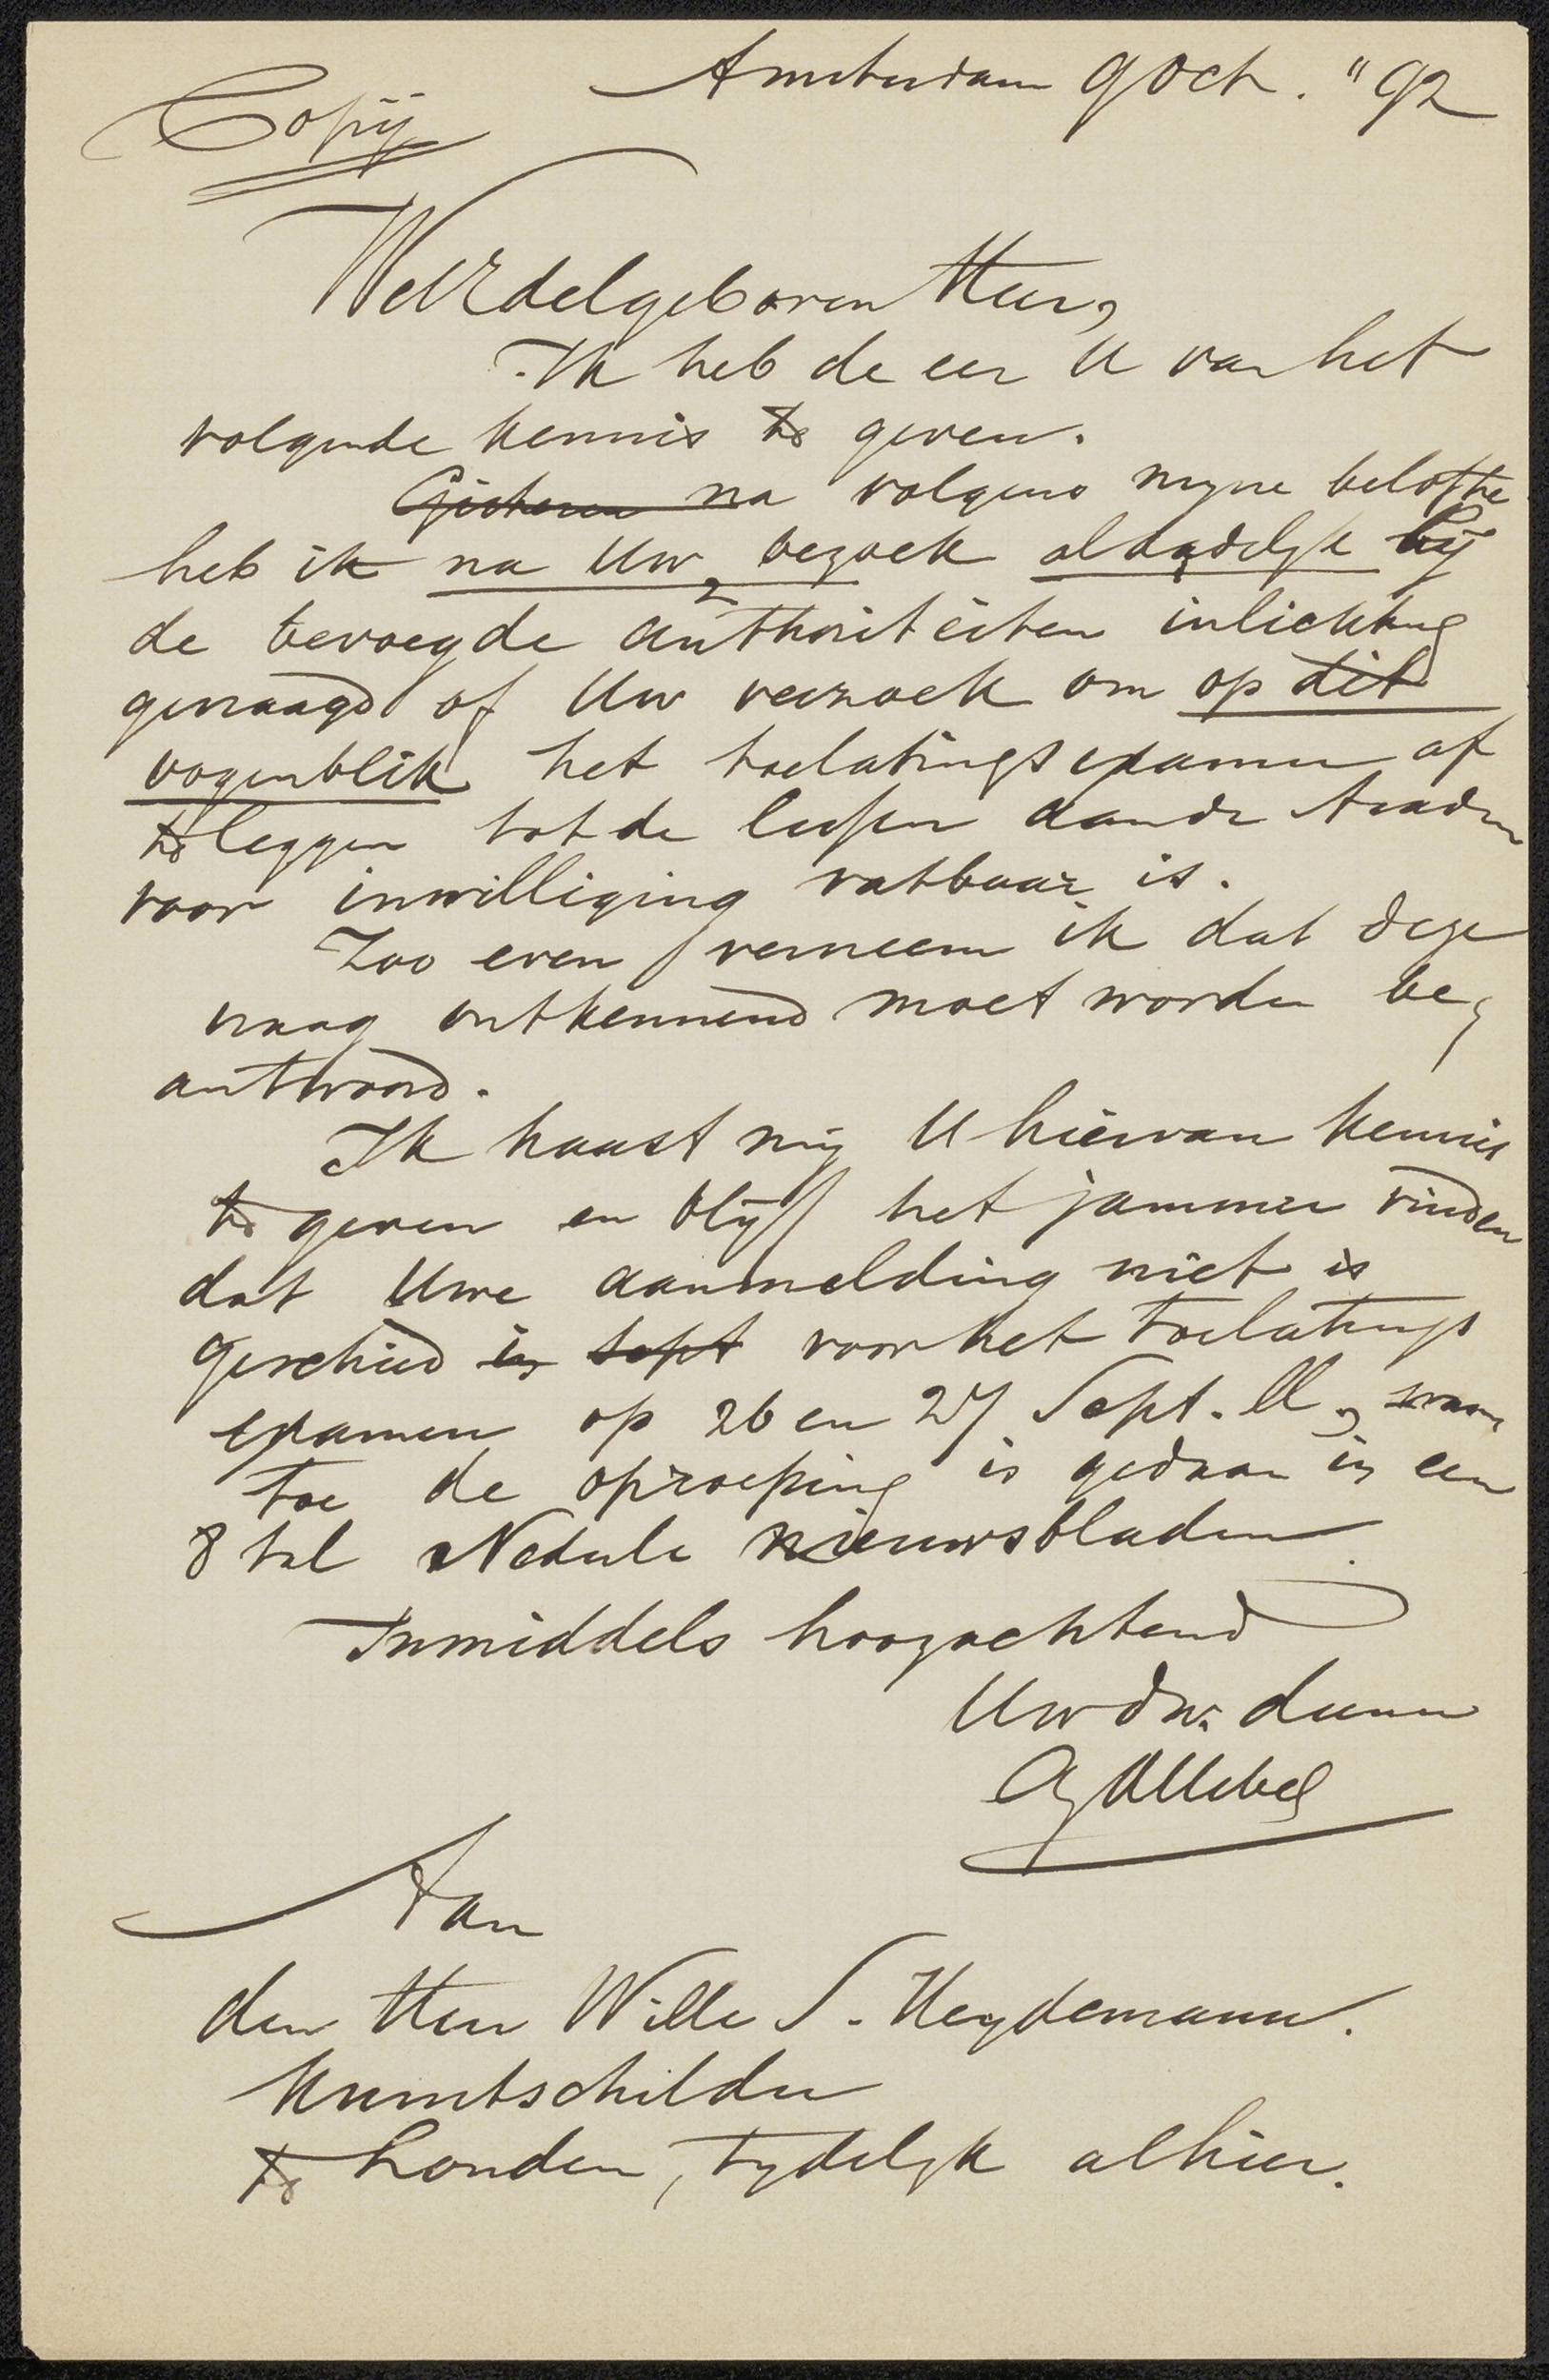 Amsterdam 9 Oct. "92
Copij
WelEdelgeboren Heer,
Ik heb de eer U van het
volgende kennis te geven.
Gisteren na volgens mijne belofte
heb ik na Uw bezoek aldadelijk bij
de bevoegde authoriteiten inlichting
gevraagd of Uw verzoek om op dit
oogenblik het toelatingsexamen af
te leggen tot de lessen aan de Acadm
voor inwilliging vatbaar is.
Zoo even verneem ik dat deze
vraag ontkennend moet worden be-
antwoord.
Ik haast mij U hiervan kennis
te geven en blijf het jammer vinden
dat Uwe aanmelding niet is
geschied in sept voor het toelatings
examen op 26 en 27 Sept. ll, waar
toe de oproeping is gedaan in een
8 tal Nederle nieuwsbladen.
Inmiddels hoogachtend
Uw dw. dienr
AJAllebé
Aan
den Heer Wille S. Heydemann.
Kunstschilder
te Londen, tydelyk alhier.